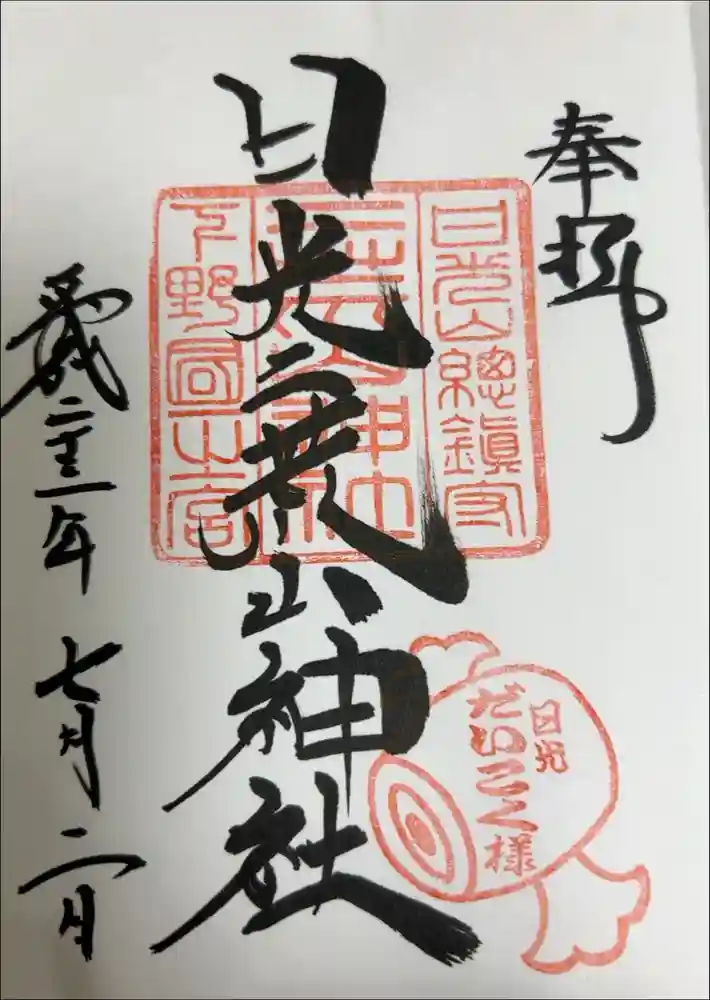 奉拝
日光二荒山神社
平成二十三年七月二日
日光山總鎮守
二荒山神社
下野國一之宮
日光
だいこく様